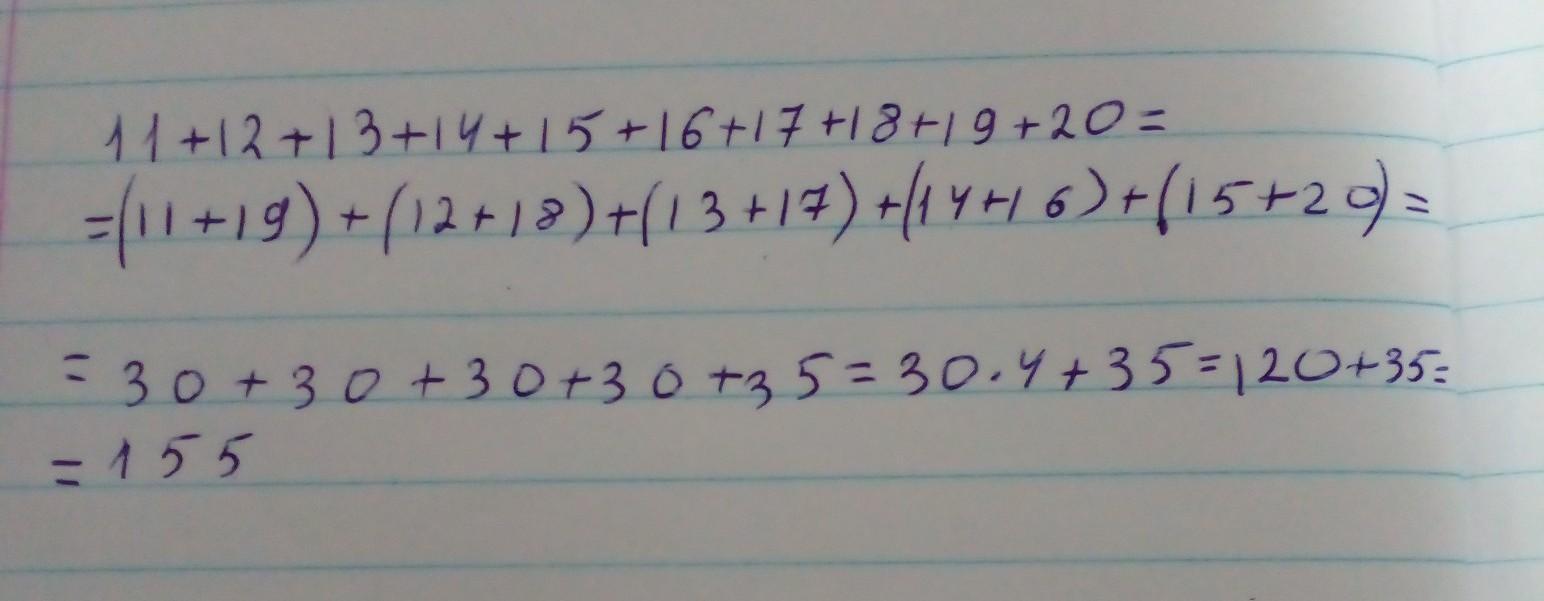 11+12+13+14+15+16+17+18+19+20=
=(11+19)+(12+18)+(13+17)+(14+16)+(15+20)=
=30+30+30+30+35=30·4+35=120+35=
=155